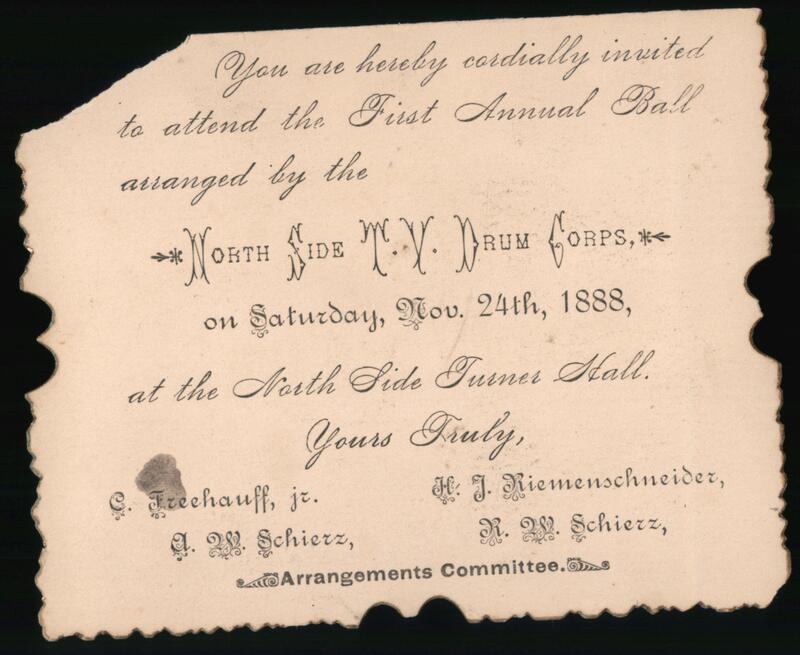 You are hereby cordially invited
to attend the First Annual Ball
arranged by the
North Side T. V. Drum Corps,
on Saturday, Nov. 24th, 1888,
at the North Side Turner Hall.
Yours Truly,
C. Freehauff, jr. H. J. Riemenschneider,
A. W. Schierz, R. W. Schierz,
Arrangements Committee.